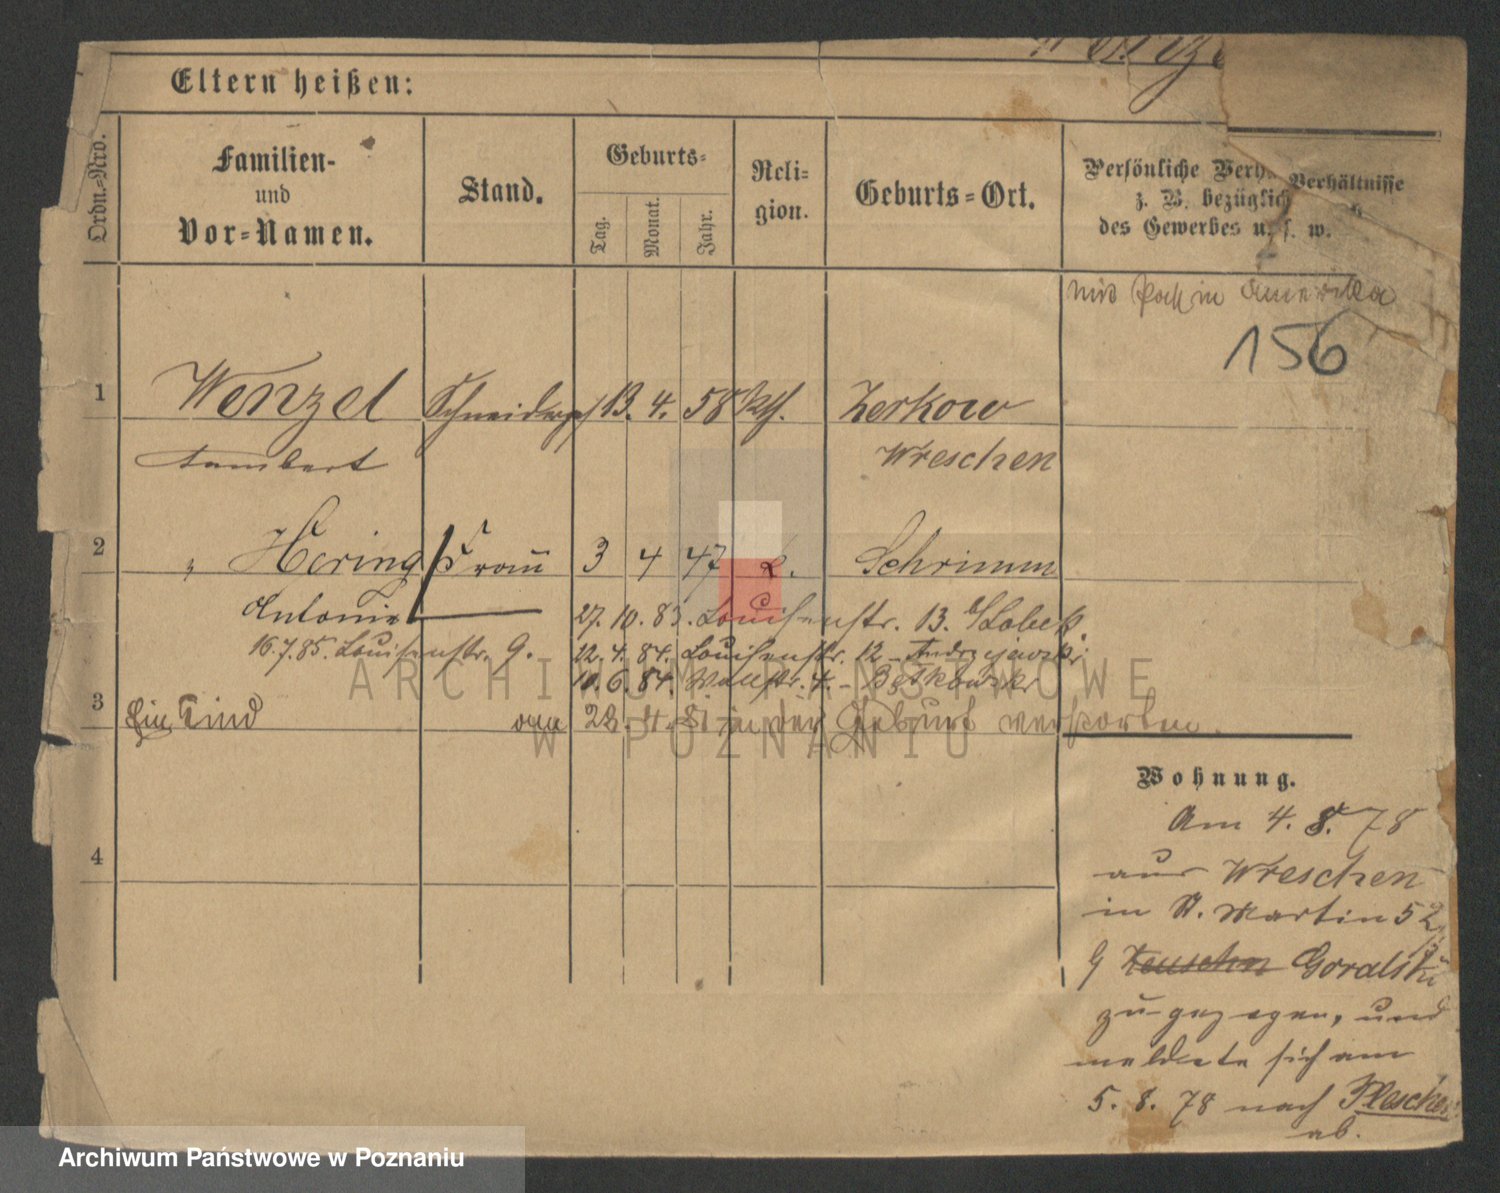 Eltern heißen:
Ordn.-Nro.
Familien-
und
Vor-Namen.
Stand.
Geburts-
Tag.
Monat.
Jahr.
Reli-
gion.
Geburts-Ort.
Persönliche Verh Verhältnisse
z. B. bezüglich
des Gewerbes u. s. w.
mit Paß in Amerika
156
1 Wenzel Schneiderges 13. 4. 58 kth. Zerkow
Lambert Wreschen
2 " Hering Frau 3 4 47 k. Schrimm
Antonie 27. 10. 83. Louisenstr. 13.
16.7.85. Louisenstr. 9. 12. 4. 84. Louisenstr. 12 - Andrzejewski
10. 6. 84. Wallstr. 4. -
3 Ein Kind am 28. 4. 81 in der Geburt verstorben.
4
Wohnung.
Am 4. 8. 78
aus Wreschen
in St. Martin 52
Goralski
zugezogen, und
meldete sich am
5. 8. 78 nach Pleschen
ab.
ARCHIWUM PAŃSTWOWE
W POZNANIU
Archiwum Państwowe w Poznaniu